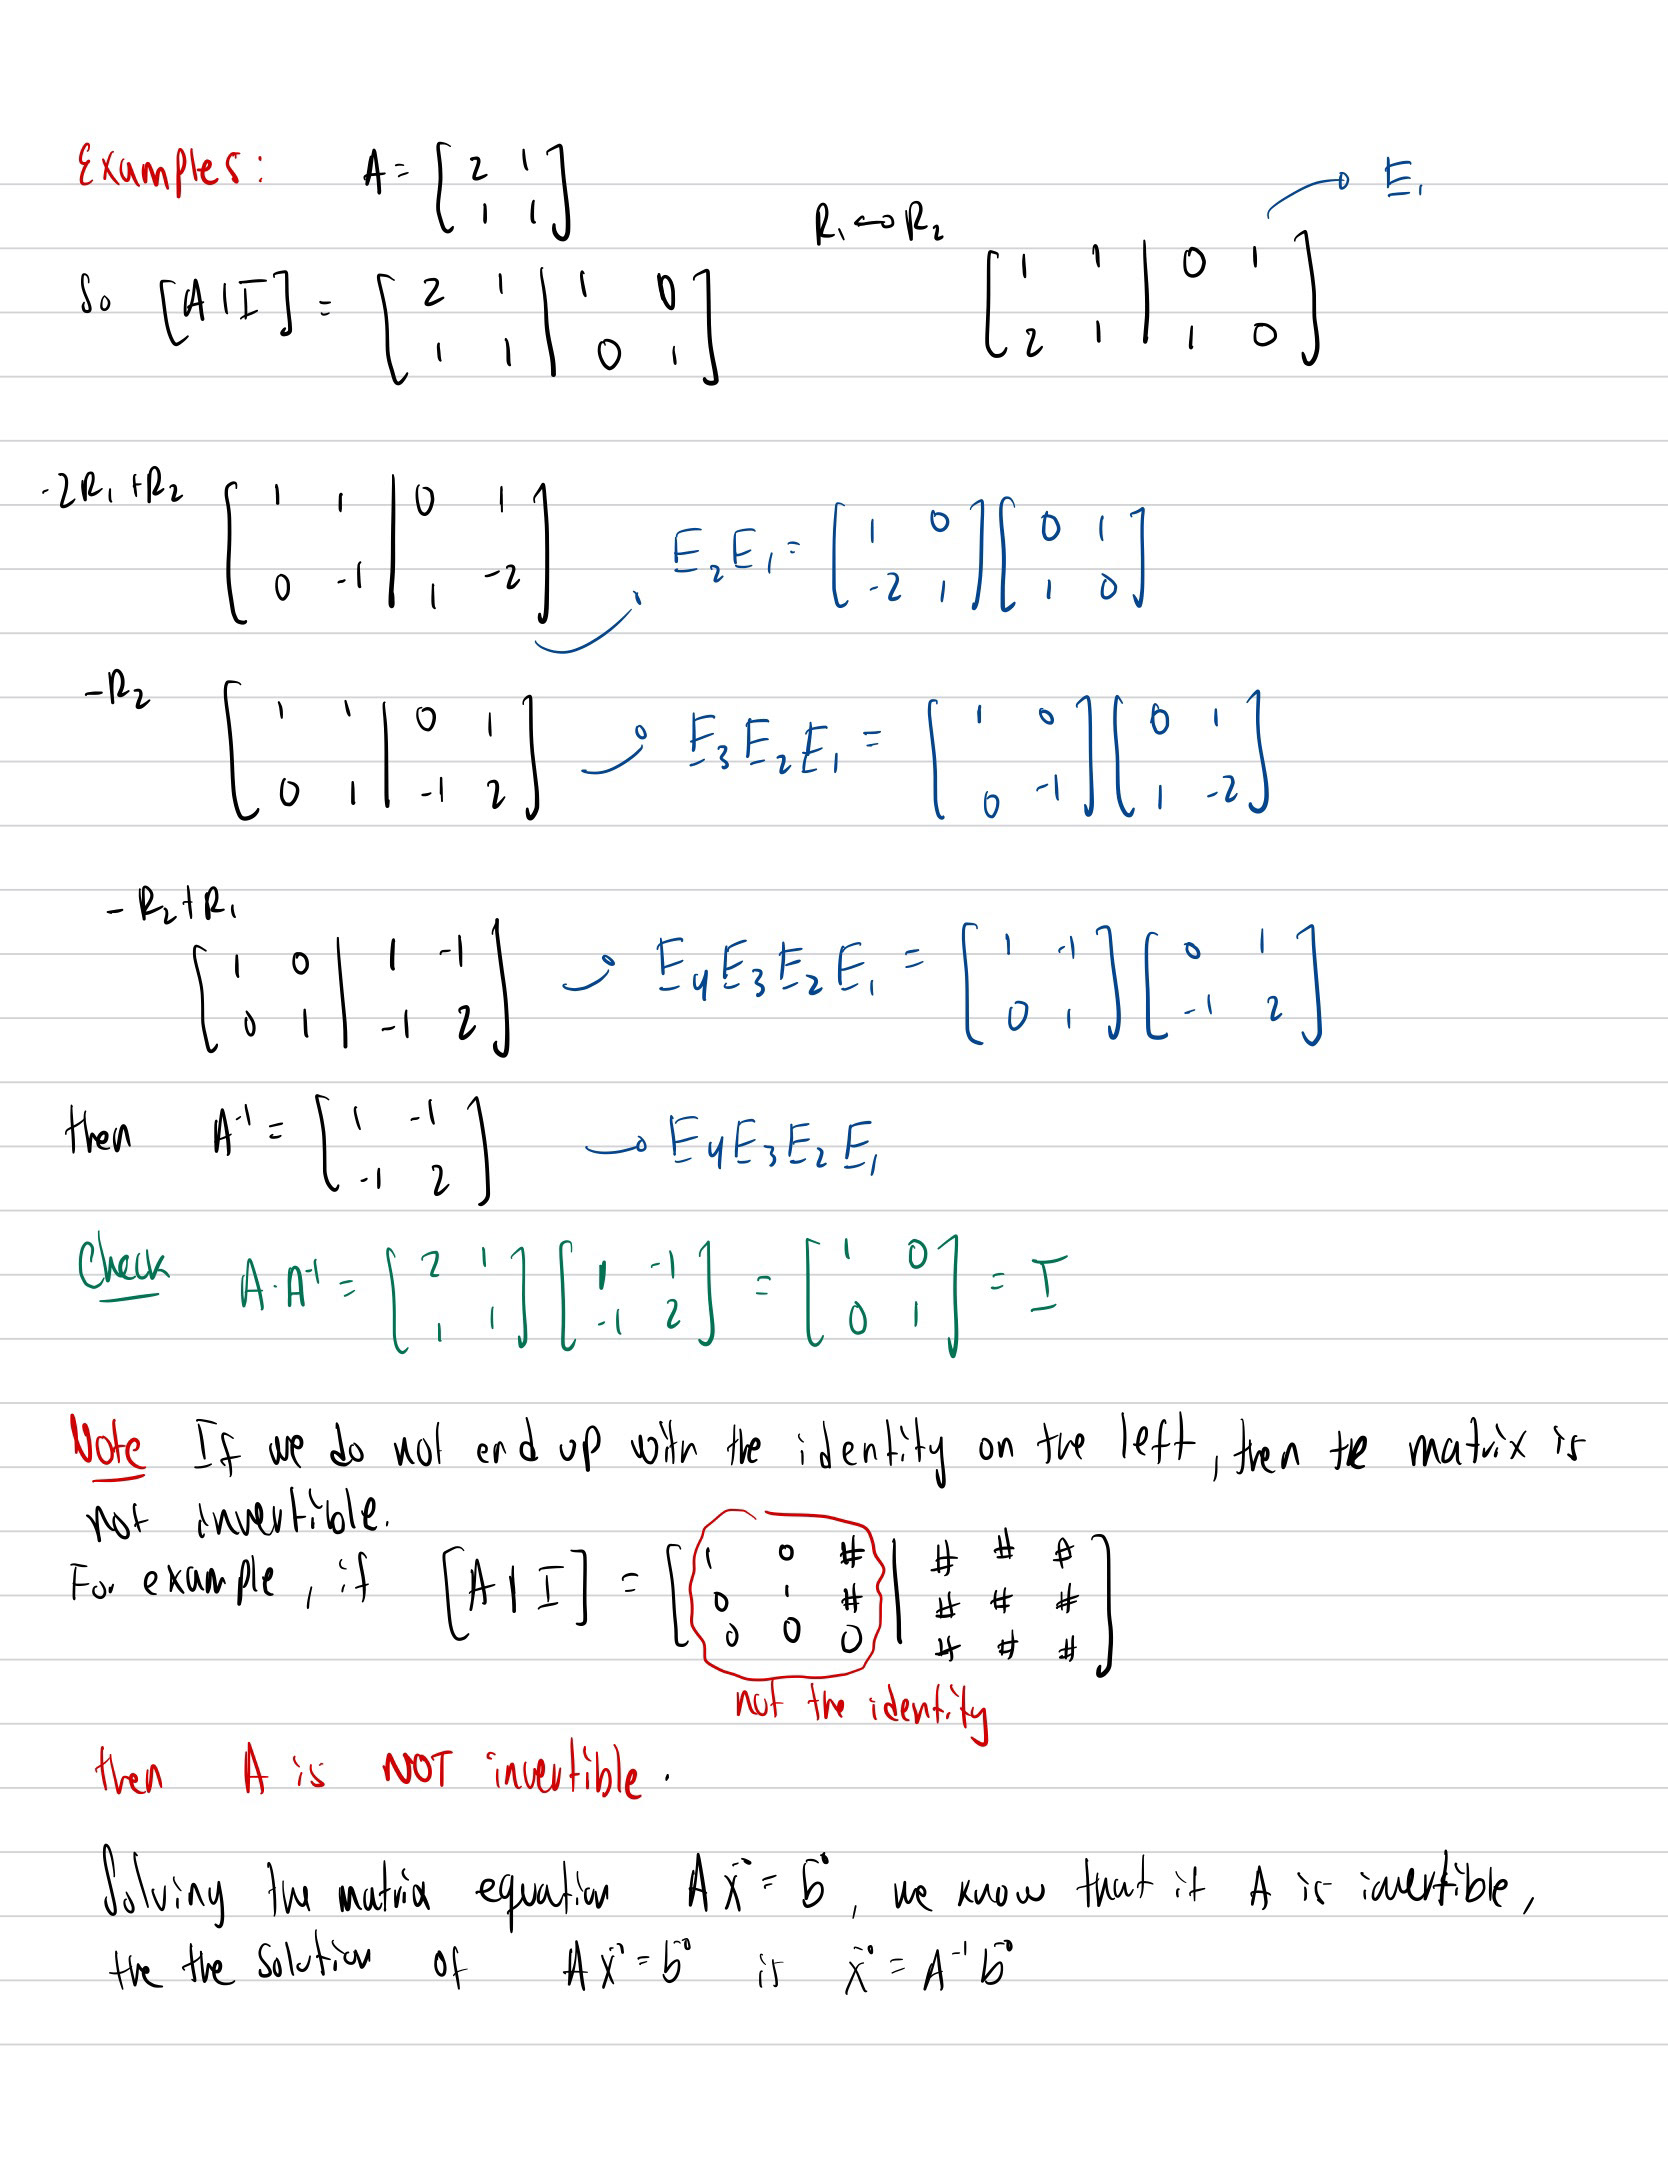 Examples: A = [ 2 1
1 1 ]
R₁ ↔ R₂
→ E₁
So [A | I] = [ 2 1 | 1 0
1 1 | 0 1 ]
[ 1 1 | 0 1
2 1 | 1 0 ]
-2R₁ + R₂ [ 1 1 | 0 1
0 -1 | 1 -2 ]
E₂E₁ = [ 1 0
-2 1 ] [ 0 1
1 0 ]
-R₂ [ 1 1 | 0 1
0 1 | -1 2 ]
E₃E₂E₁ = [ 1 0
0 -1 ] [ 0 1
1 -2 ]
-R₂ + R₁
[ 1 0 | 1 -1
0 1 | -1 2 ]
E₄E₃E₂E₁ = [ 1 -1
0 1 ] [ 0 1
-1 2 ]
then A⁻¹ = [ 1 -1
-1 2 ]
→ E₄E₃E₂E₁
Check A·A⁻¹ = [ 2 1
1 1 ] [ 1 -1
-1 2 ] = [ 1 0
0 1 ] = I
Note If we do not end up with the identity on the left, then the matrix is
not invertible.
For example, if [A | I] = [ 1 0 # | # # #
0 1 # | # # #
0 0 0 | # # # ]
not the identity
then A is NOT invertible.
Solving the matrix equation Ax⃗ = b⃗, we know that if A is invertible,
the the solution of Ax⃗ = b⃗ is x⃗ = A⁻¹b⃗